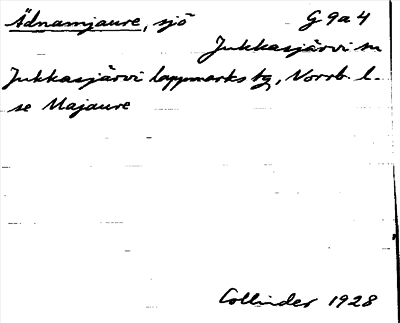 Ädnamjaure, sjö G 9a4
Jukkasjärvi sn
Jukkasjärvi lappmarks tg, Norrb. l.
se Majaure
Collinder 1928